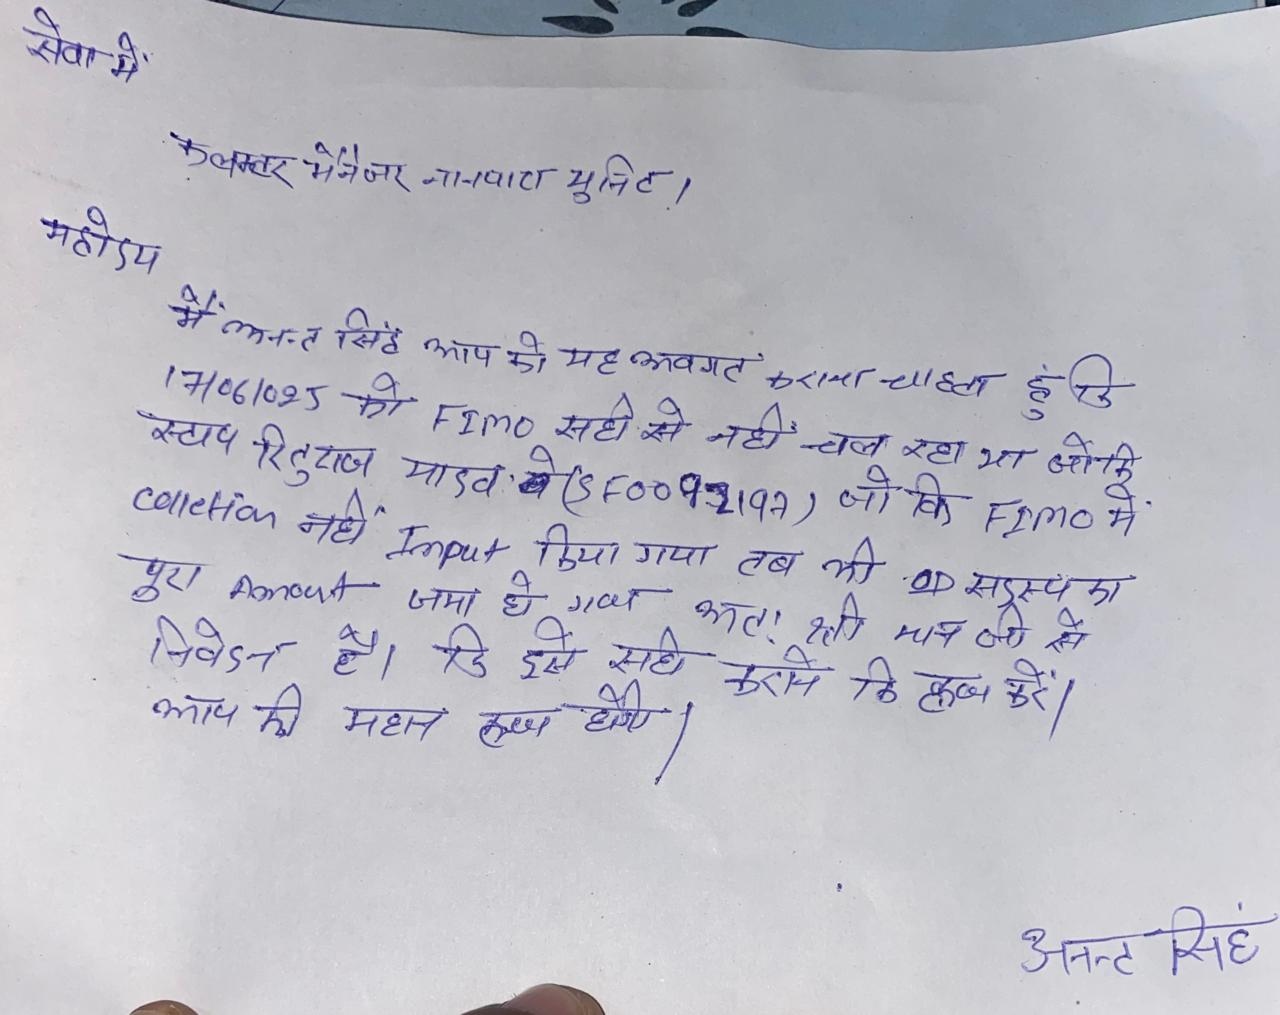 सेवा में
कलस्टर मैनेजर नानपारा युनिट।
महोदय
मैं अनन्त सिंह आप को यह अवगत कराना चाहता हुं कि
17/06/025 को FIMO सही से नहीं चल रहा था जोकि
स्टाप रितुराज यादव (SF0092197) जो कि FIMO में
colletion नहीं Input किया गया तब भी OD सदस्य का
पुरा Amount जमा हो गया अतः श्री मान जी से
निवेदन है। कि इसे सही कराने कि कृपा करें।
आप की महान कृपा होगी।
अनन्त सिंह